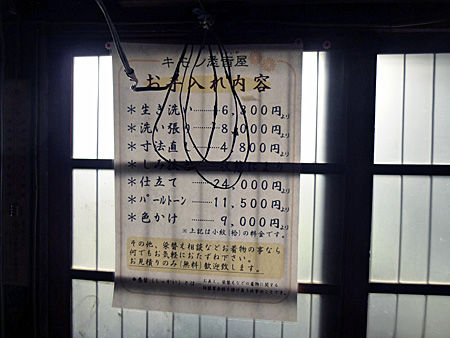 キモノ
お手入れ内容
＊生き洗い……6,300円より
＊洗い張り……8,000円より
＊寸法直し……4,800円より
＊しみ抜き
＊仕立て……24,000円より
＊パールトーン……11,500円より
＊色かけ……9,000円より
＊上記は小紋(袷)の料金です。
その他、染替え相談などお着物の事なら
何でもお気軽におたずね下さい。
お見積りのみ(無料)歓迎致します。